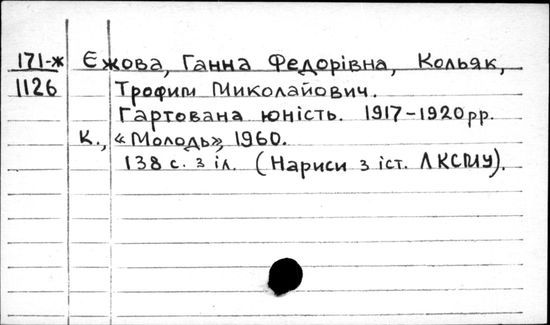 171-ж Єжова, Ганна Федорівна, Кольяк,
1126 Трофим Миколайович.
Гартована юність. 1917-1920 рр.
К., «Молодь», 1960.
138 с. з іл. (Нариси з іст. ЛКСМУ).